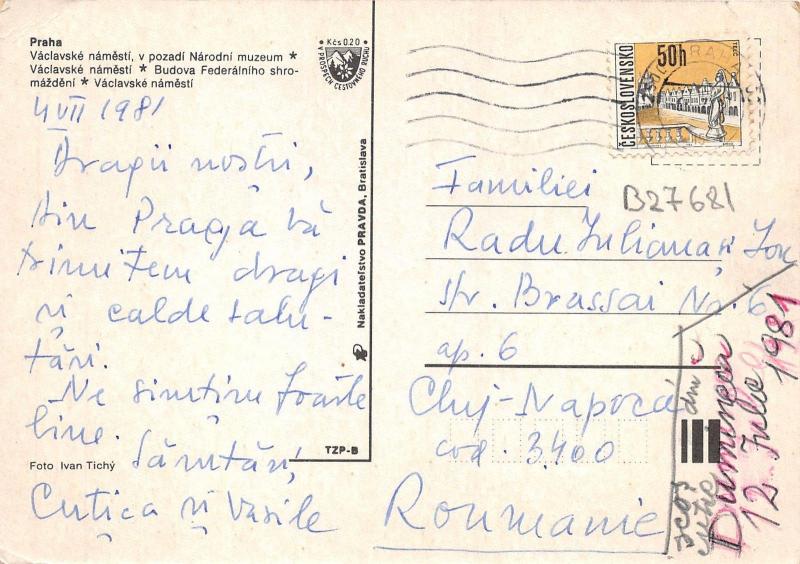 Praha
Václavské náměstí, v pozadí Národní muzeum *
Václavské náměstí * Budova Federálního shro-
máždění * Václavské náměstí
Kčs 0.20
V PROSPĚCH CESTOVNÉHO RUCHU
4 VII 1981
Dragii noștri,
din Praga vă
trimitem dragi
și calde salu-
tări.
Ne simțim foarte
bine.
Cutica și Vasile
Foto Ivan Tichý
TZP-B
Nakladateľstvo PRAVDA, Bratislava
ČESKOSLOVENSKO
50h
PRAHA
B27681
Familiei
Radu Iuliana și Ion
str. Brassai Nr. 6
ap. 6
Cluj-Napoca
cod. 3400
Roumanie
Duminica
12 Iulie 1981